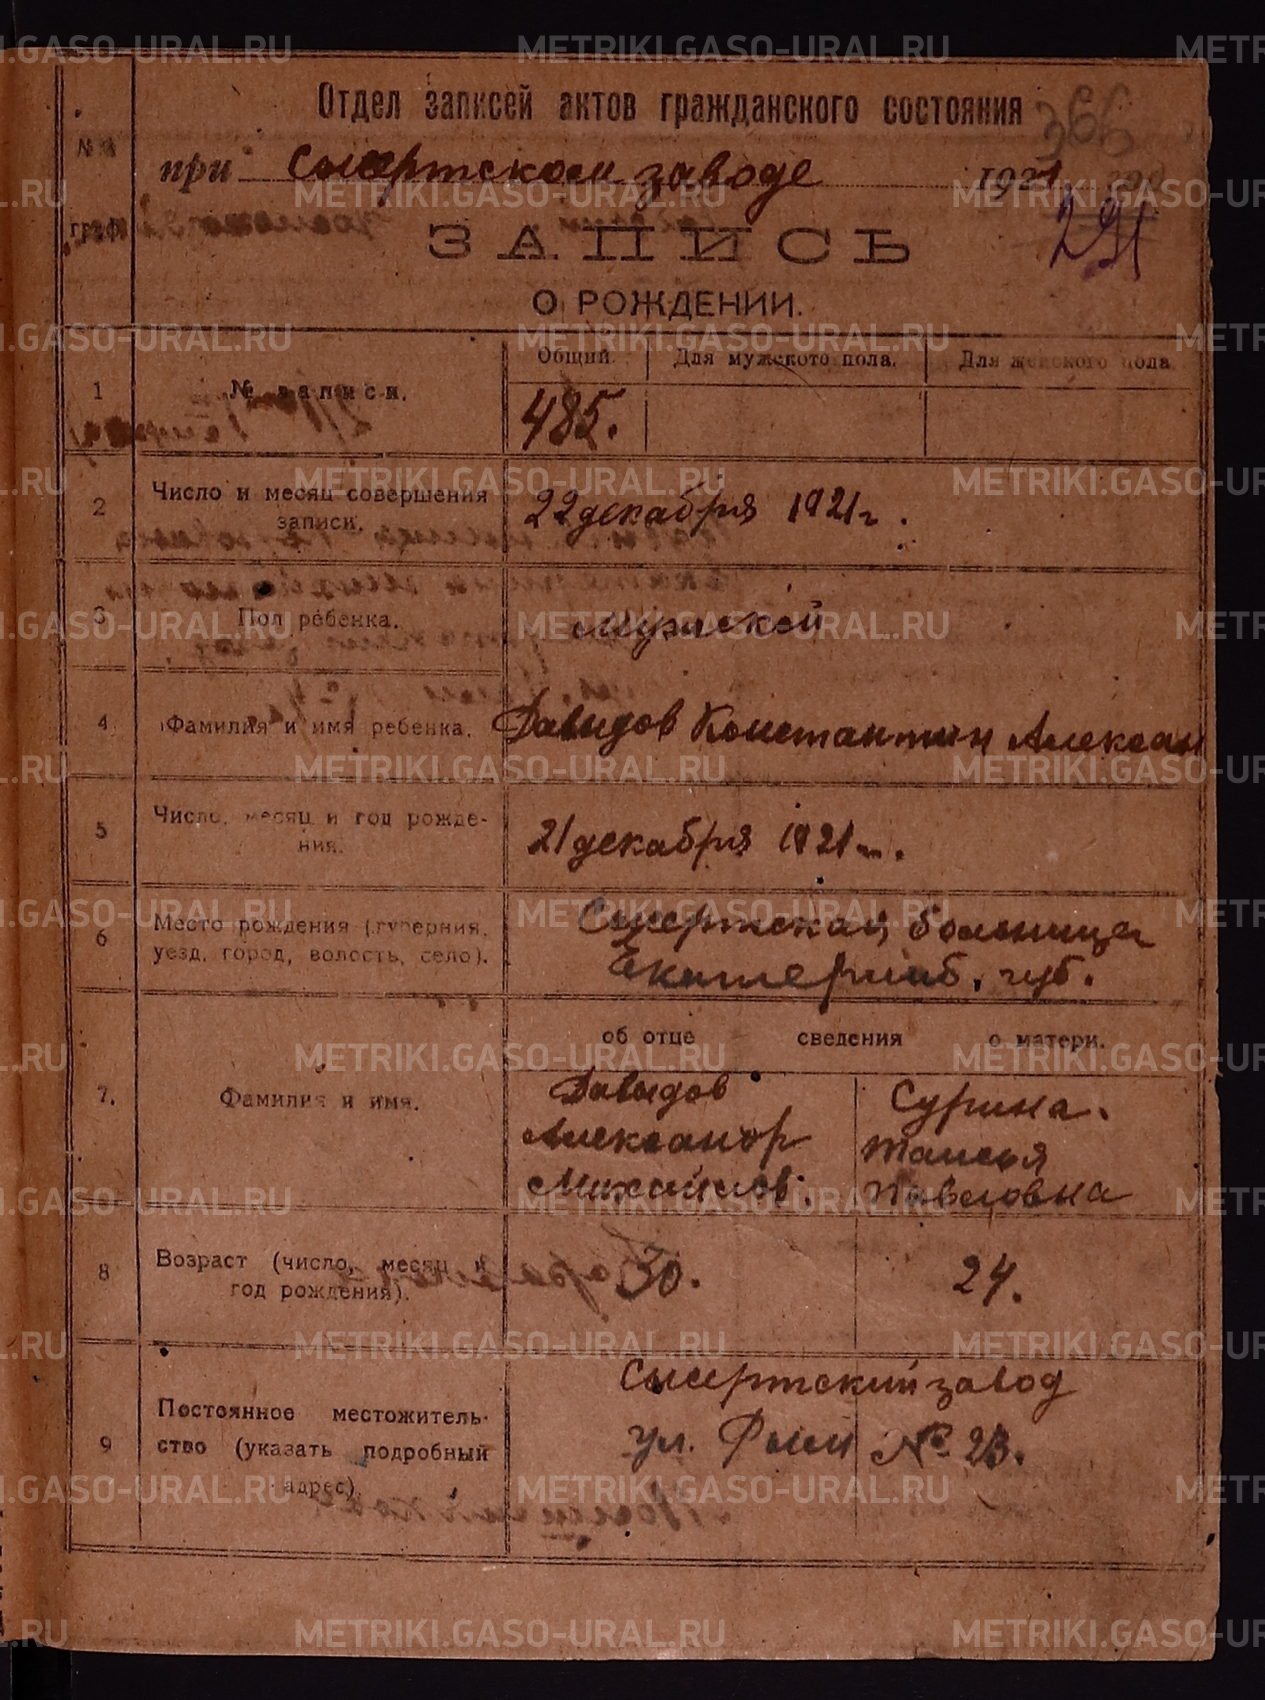 Отдел записей актов гражданского состояния
366
при Сысертском заводе 1921
291
№№
граф
ЗАПИСЬ
О РОЖДЕНИИ.
Общий. Для мужского пола. Для женского пола
1 № записи. 485.
2 Число и месяц совершения
записи. 22 декабря 1921 г.
3 Пол ребенка. Мужской
4 Фамилия и имя ребенка. Давыдов Константин Алексан
5 Число, месяц и год рожде-
ния. 21 декабря 1921 г.
6 Место рождения (губерния,
уезд, город, волость, село). Сысертская больница
Екатеринб. губ.
об отце сведения о матери.
7. Фамилия и имя.
Давыдов
Александр
Михайлов.
Сурина.
Таисья
Павловна
8 Возраст (число, месяц и
год рождения). 30. 24.
9 Постоянное местожитель-
ство (указать подробный
адрес).
Сысертский завод
ул. № 23.
METRIKI.GASO-URAL.RU